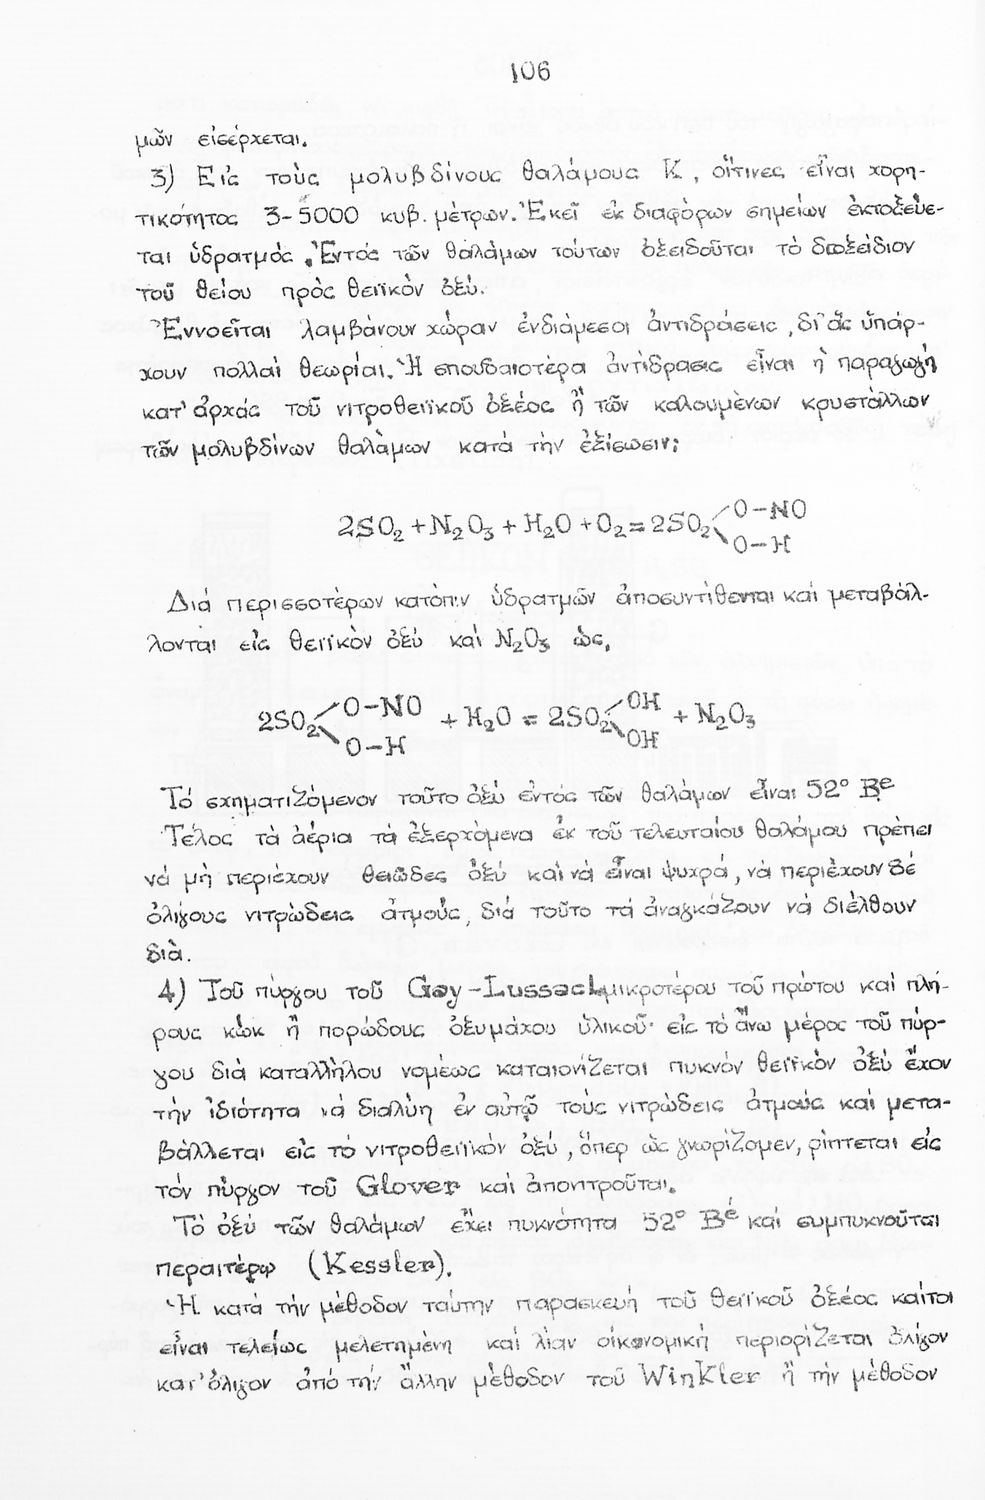 106
μῶν εἰσέρχεται.
3) Εἰς τοὺς μολυβδίνους θαλάμους Κ, οἵτινες εἶναι χορη-
τικότητος 3-5000 κυβ. μέτρων. Ἐκεῖ ἐκ διαφόρων σημείων ἐκτοξεύε-
ται ὑδρατμὸς. Ἐντός τῶν θαλάμων τούτων ὀξειδοῦται τὸ διοξείδιον
τοῦ θείου πρὸς θειϊκὸν ὀξύ.
Ἐννοεῖται λαμβάνουν χώραν ἐνδιάμεσοι ἀντιδράσεις, δι' ἃς ὑπάρ-
χουν πολλαὶ θεωρίαι. Ἡ σπουδαιοτέρα ἀντίδρασις εἶναι ἡ παραγωγὴ
κατ' ἀρχάς τοῦ νιτροθειϊκοῦ ὀξέος ἢ τῶν καλουμένων κρυστάλλων
τῶν μολυβδίνων θαλάμων κατά τὴν ἐξίσωσιν:
2SO₂ + N₂O₃ + H₂O + O₂ = 2SO₂ O-NO
O-H
Διά περισσοτέρων κατόπιν ὑδρατμῶν ἀποσυντίθενται καί μεταβάλ-
λονται εἰς θειϊκὸν ὀξύ καί N₂O₃ ὡς,
2SO₂ O-NO O-H + H₂O = 2SO₂ OH OH + N₂O₃
Τό σχηματιζόμενον τοῦτο ὀξύ ἐντός τῶν θαλάμων εἶναι 52° Βe
Τέλος τὰ ἀέρια τά ἐξερχόμενα ἐκ τοῦ τελευταίου θαλάμου πρέπει
νά μὴ περιέχουν θειῶδες ὀξύ καί νά εἶναι ψυχρά, νά περιέχουν δέ
ὀλίγους νιτρώδεις ἀτμούς, διά τοῦτο τά ἀναγκάζουν νά διέλθουν
διὰ.
4) Τοῦ πύργου τοῦ Gay-Lussack μικροτέρου τοῦ πρώτου καί πλή-
ρους κὼκ ἢ πορώδους ὀξυμάχου ὑλικοῦ· εἰς τό ἄνω μέρος τοῦ πύρ-
γου διά καταλλήλου νομέως καταιονίζεται πυκνόν θειϊκὸν ὀξύ ἔχον
τήν ἰδιότητα νά διαλύῃ ἐν αὐτῷ τούς νιτρώδεις ἀτμούς καί μετα-
βάλλεται εἰς τό νιτροθειϊκόν ὀξύ, ὅπερ ὡς γνωρίζομεν, ρίπτεται εἰς
τόν πύργον τοῦ Glover καί ἀπονιτροῦται.
Τὸ ὀξύ τῶν θαλάμων ἔχει πυκνότητα 52° Βé καί συμπυκνοῦται
περαιτέρω (Kessler).
Ἡ κατά τήν μέθοδον ταύτην παρασκευή τοῦ θειϊκοῦ ὀξέος καίτοι
εἶναι τελείως μελετημένη καί λίαν οἰκονομική περιορίζεται ὀλίγον
κατ' ὀλίγον ἀπό τήν ἄλλην μέθοδον τοῦ Winkler ἢ τήν μέθοδον